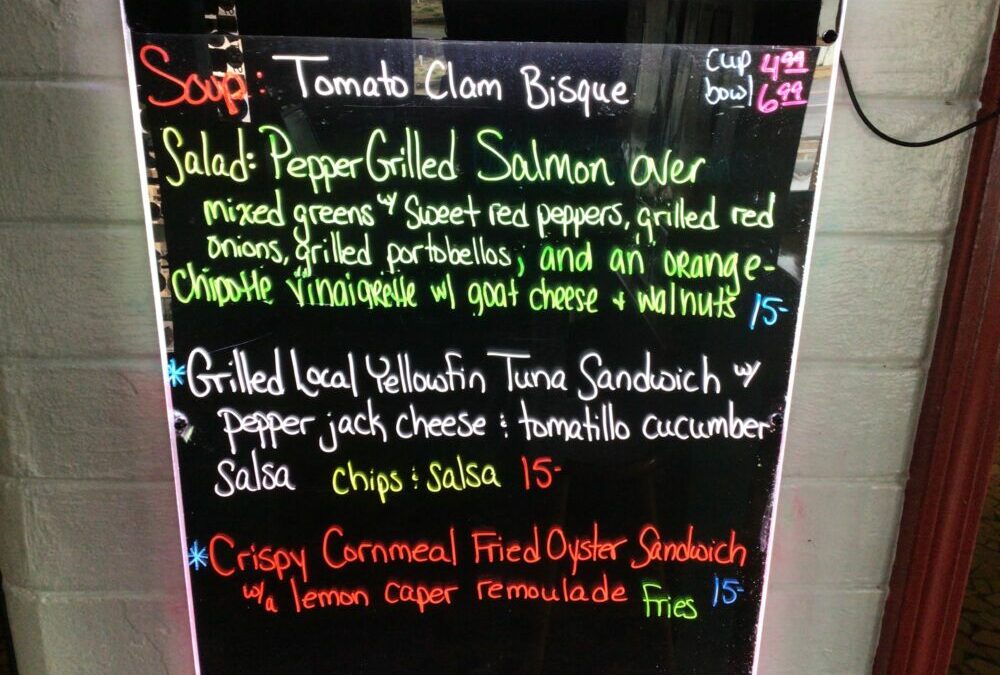 Soup: Tomato Clam Bisque cup 4.99
bowl 6.99
Salad: Pepper Grilled Salmon over
mixed greens w/ sweet red peppers, grilled red
onions, grilled portobellos, and an orange-
chipotle vinaigrette w/ goat cheese + walnuts 15-
*Grilled Local Yellowfin Tuna Sandwich w/
pepper jack cheese & tomatillo cucumber
salsa chips & salsa 15-
*Crispy Cornmeal Fried Oyster Sandwich
w/a lemon caper remoulade fries 15-